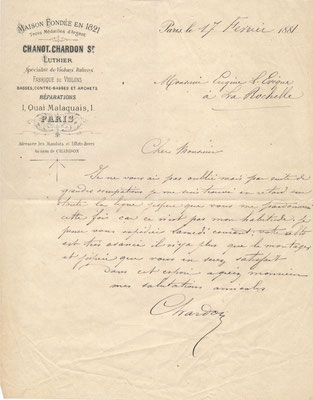 MAISON FONDÉE EN 1821
Trois Médailles d'Argent
CHANOT, CHARDON Sr
LUTHIER
Spécialité de Violons Italiens
FABRIQUE DE VIOLONS
BASSES, CONTRE-BASSES ET ARCHETS
RÉPARATIONS
1, Quai Malaquais, 1.
PARIS
Adresser les Mandats et
au nom de CHARDON
Paris le 17 Fevrier 1881
Monsieur Eugène
à La Rochelle
Cher Monsieur
Je ne vous ais pas oublié mais par suite de
grandes occupations je me suis trouvé en retard
que vous me pardonnerez
cette fois car ce n'est pas mon habitude, je
pense vous expédier Samedi courant, votre alto
est très avancé il n'y a plus que le montage
et que vous en serez satisfait
Dans cet espoir agréez monsieur
mes salutations amicales
Chardon